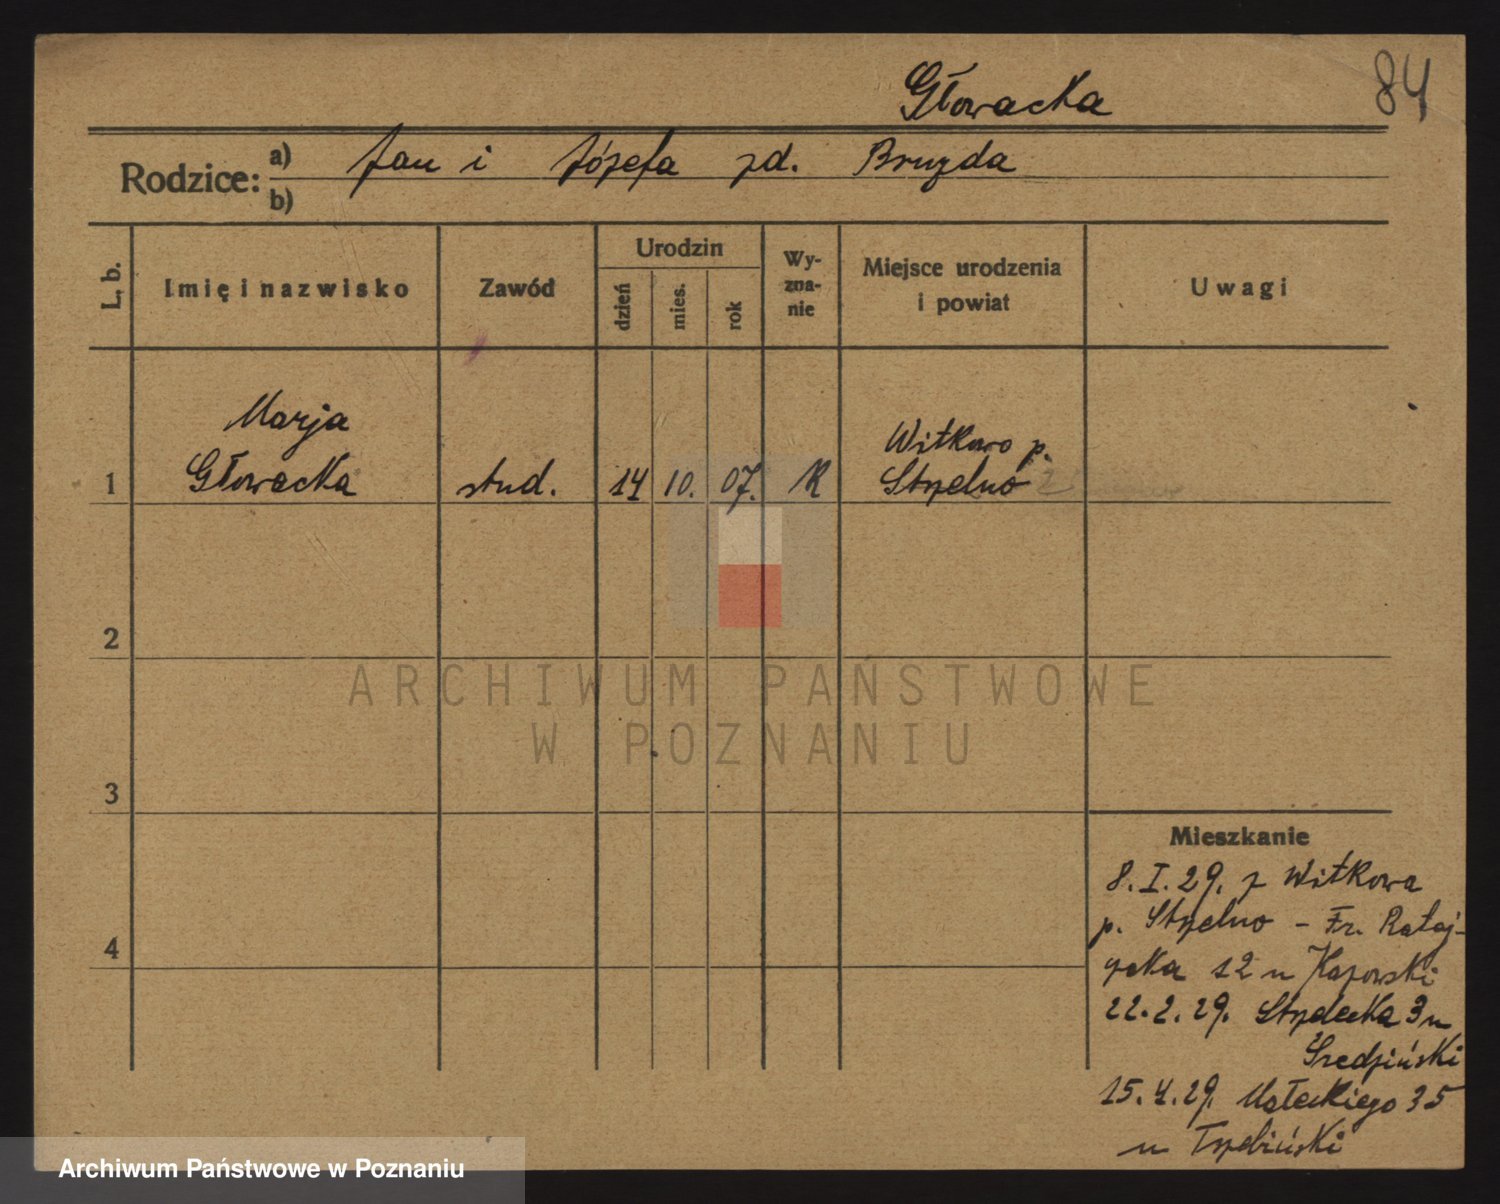 Głowacka
84
Rodzice:
a) Jan i Józefa zd. Bruzda
b)
L. b.
Imię i nazwisko
Zawód
Urodzin
dzień
mies.
rok
Wy-
zna-
nie
Miejsce urodzenia
i powiat
Uwagi
Marja
Głowacka
Witkowo p.
1 stud. 14 10. 07. K Strzelno
2
3
4
ARCHIWUM PAŃSTWOWE
W POZNANIU
Mieszkanie
8.I.29. z Witkowa
p. Strzelno – Fr. Rataj-
czaka 12 u
22.2.29. Strzelecka 3 u
Średziński
15.4.29. Małeckiego 35
u Trzebiński
Archiwum Państwowe w Poznaniu